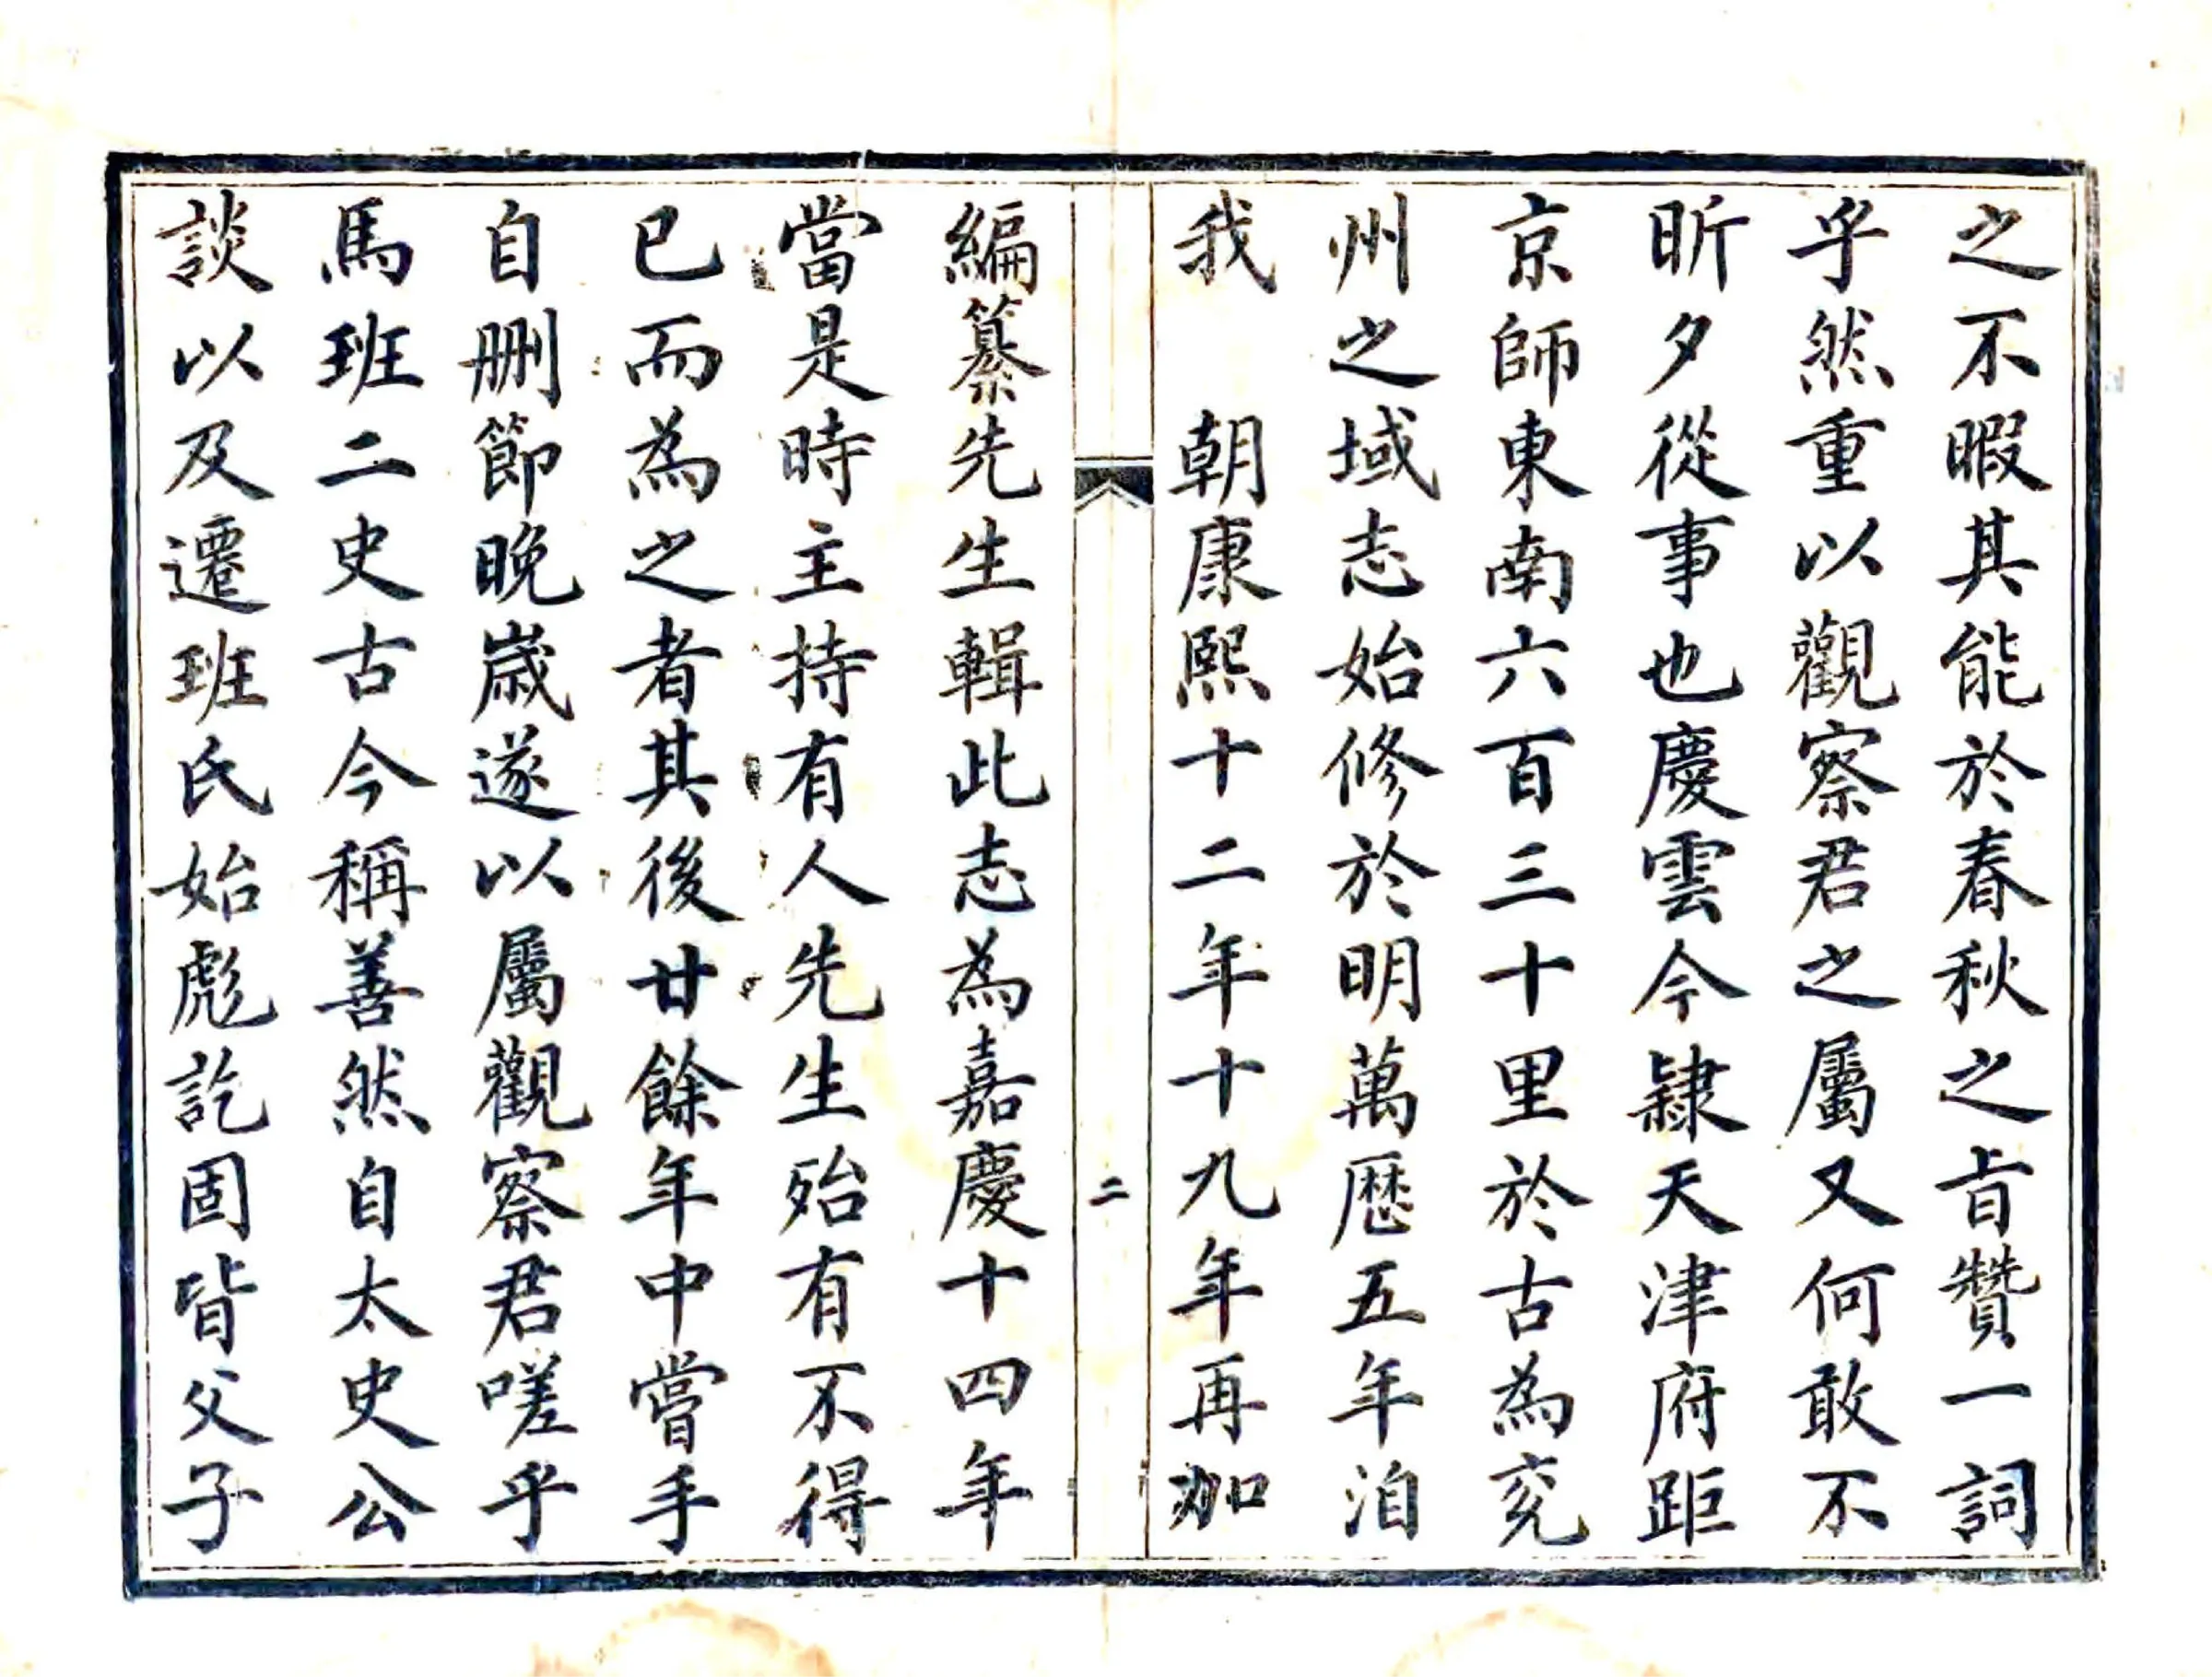 之不暇其能於春秋之旨贊一詞
乎然重以觀察君之屬又何敢不
昕夕從事也慶雲今隸天津府距
京師東南六百三十里於古為兖
州之域志始修於明萬歷五年洎
我　朝康熙十二年十九年再加
二
編纂先生輯此志為嘉慶十四年
當是時主持有人先生殆有不得
已而為之者其後廿餘年中嘗手
自删節晚歲遂以屬觀察君嗟乎
馬班二史古今稱善然自太史公
談以及遷班氏始彪訖固皆父子